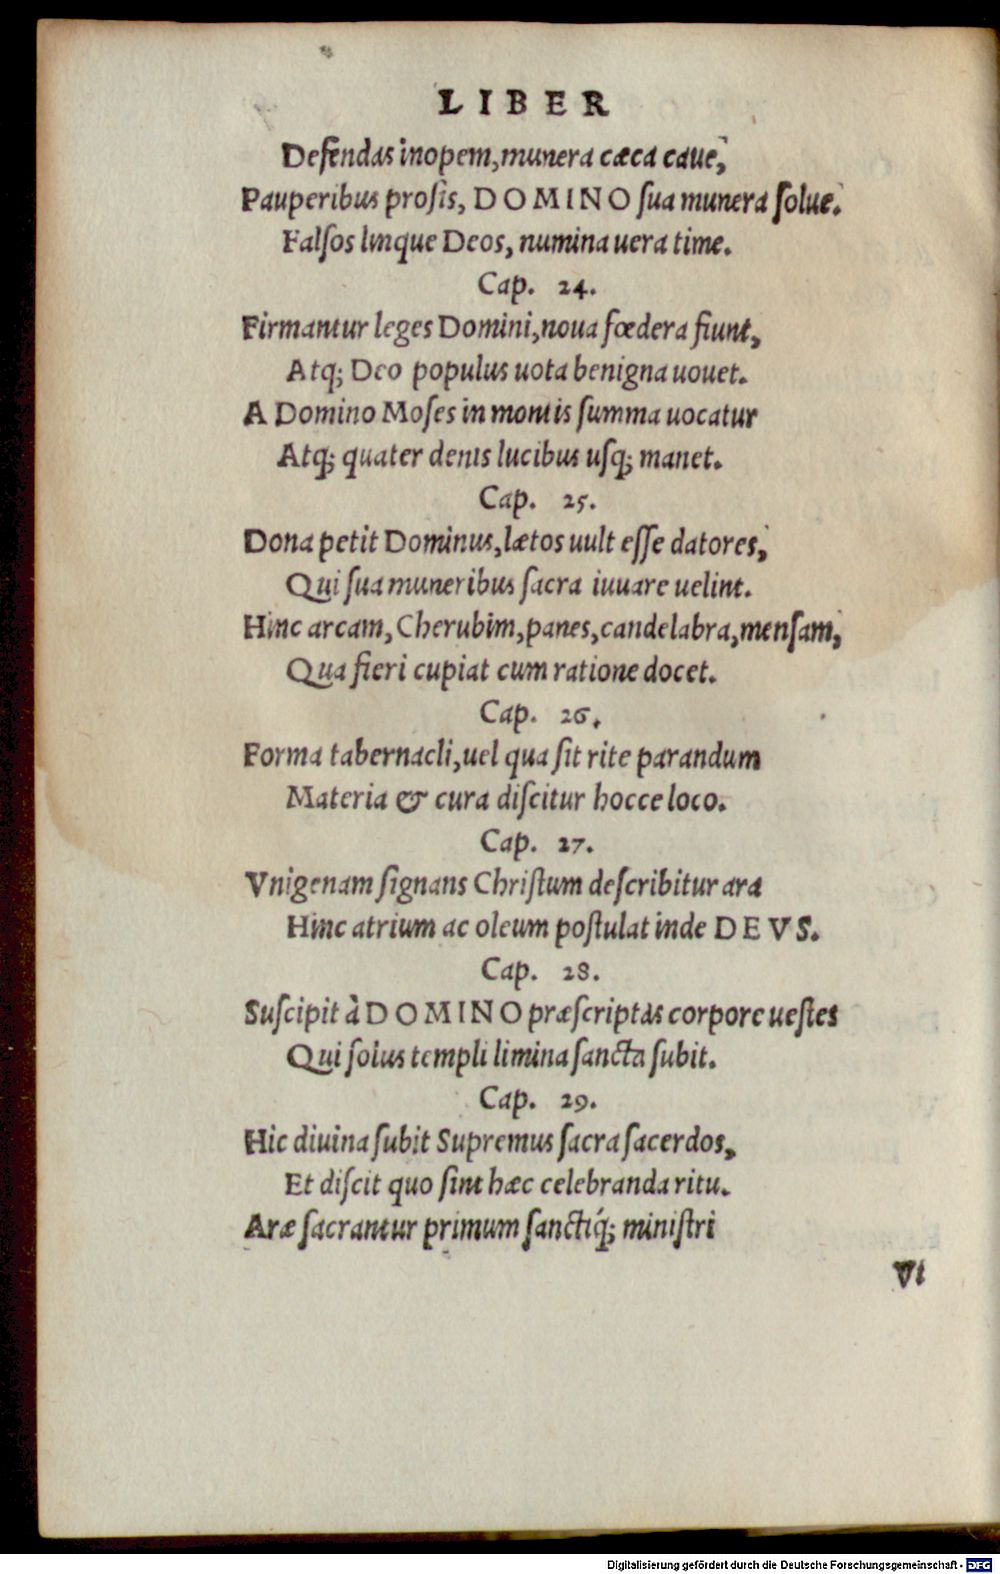 LIBER
Defendas inopem, munera cæca caue,
Pauperibus prosis, DOMINO sua munera solue.
Falsos linque Deos, numina uera time.
Cap. 24.
Firmantur leges Domini, noua fœdera fiunt,
Atq; Deo populus uota benigna uouet.
A Domino Moses in montis summa uocatur
Atq; quater denis lucibus usq; manet.
Cap. 25.
Dona petit Dominus, lætos uult esse datores,
Qui sua muneribus sacra iuuare uelint.
Hinc arcam, Cherubim, panes, candelabra, mensam,
Qua fieri cupiat cum ratione docet.
Cap. 26.
Forma tabernacli, uel qua sit rite parandum
Materia & cura discitur hocce loco.
Cap. 27.
Vnigenam signans Christum describitur ara
Hinc atrium ac oleum postulat inde DEVS.
Cap. 28.
Suscipit à DOMINO præscriptas corpore uestes
Qui solus templi limina sancta subit.
Cap. 29.
Hic diuina subit Supremus sacra sacerdos,
Et discit quo sint hæc celebranda ritu.
Aræ sacrantur primum sanctiq́; ministri
Vt
Digitalisierung gefördert durch die Deutsche Forschungsgemeinschaft - DFG